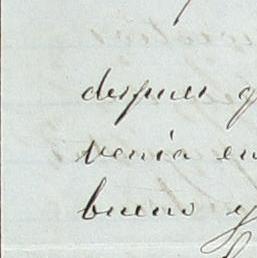 despues q
venia en
bueno y